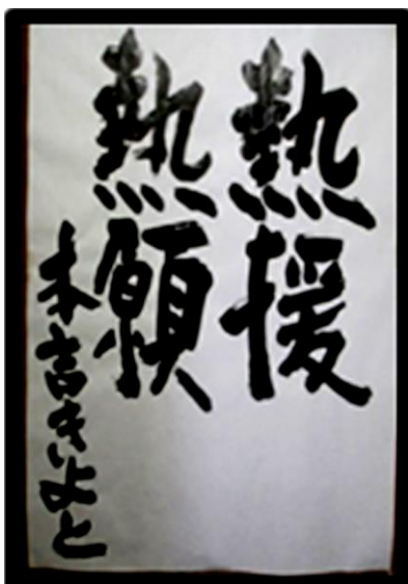 熱援
熱願
木吉きいよと